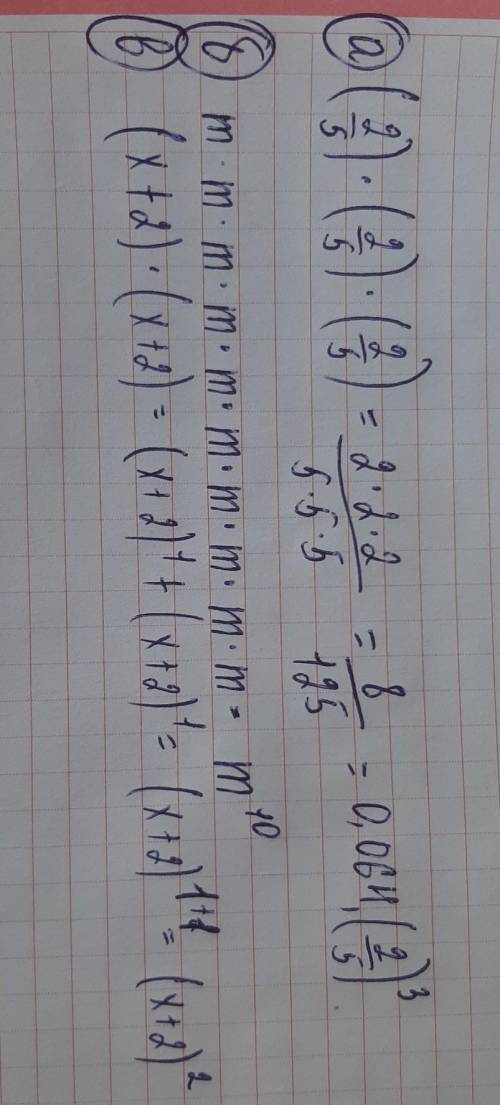 а (2/5) · (2/5) · (2/5) = 2·2·2/5·5·5 = 8/125 = 0,064, (2/5)³
б m · m · m · m · m · m · m · m · m · m = m¹⁰
в (x+2) · (x+2) = (x+2)¹ + (x+2)¹ = (x+2)¹⁺¹ = (x+2)²